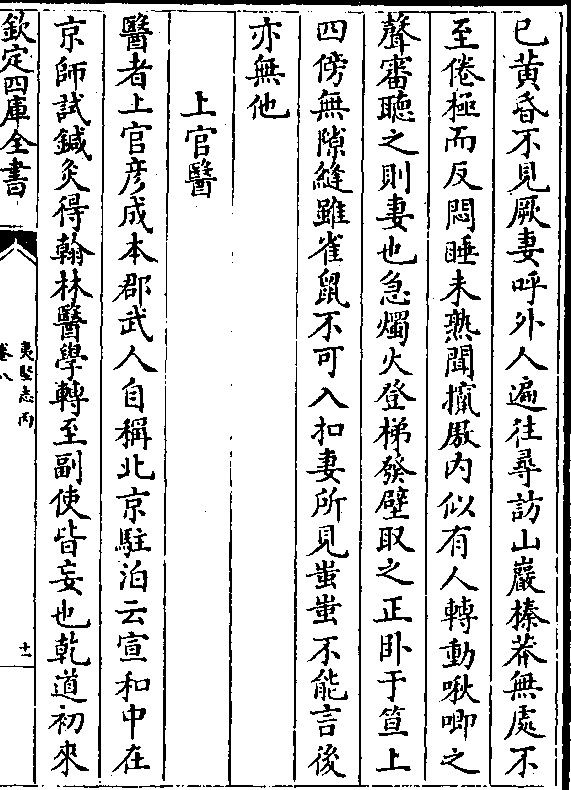 已黄昏不見厥妻呼外人遍往尋訪山巖榛莽無處不
至倦極而反悶睡未熟聞攛厫内似有人轉動啾唧之
聲審聽之則妻也急燭火登梯發壁取之正卧于笪上
四傍無隙縫雖雀鼠不可入扣妻所見蚩蚩不能言後
亦無他
上官醫
醫者上官彦成本郡武人自稱北京駐泊云宣和中在
京師試鍼灸得翰林醫學轉至副使皆妄也乾道初來
欽定四庫全書
夷堅志丙
卷八
十一